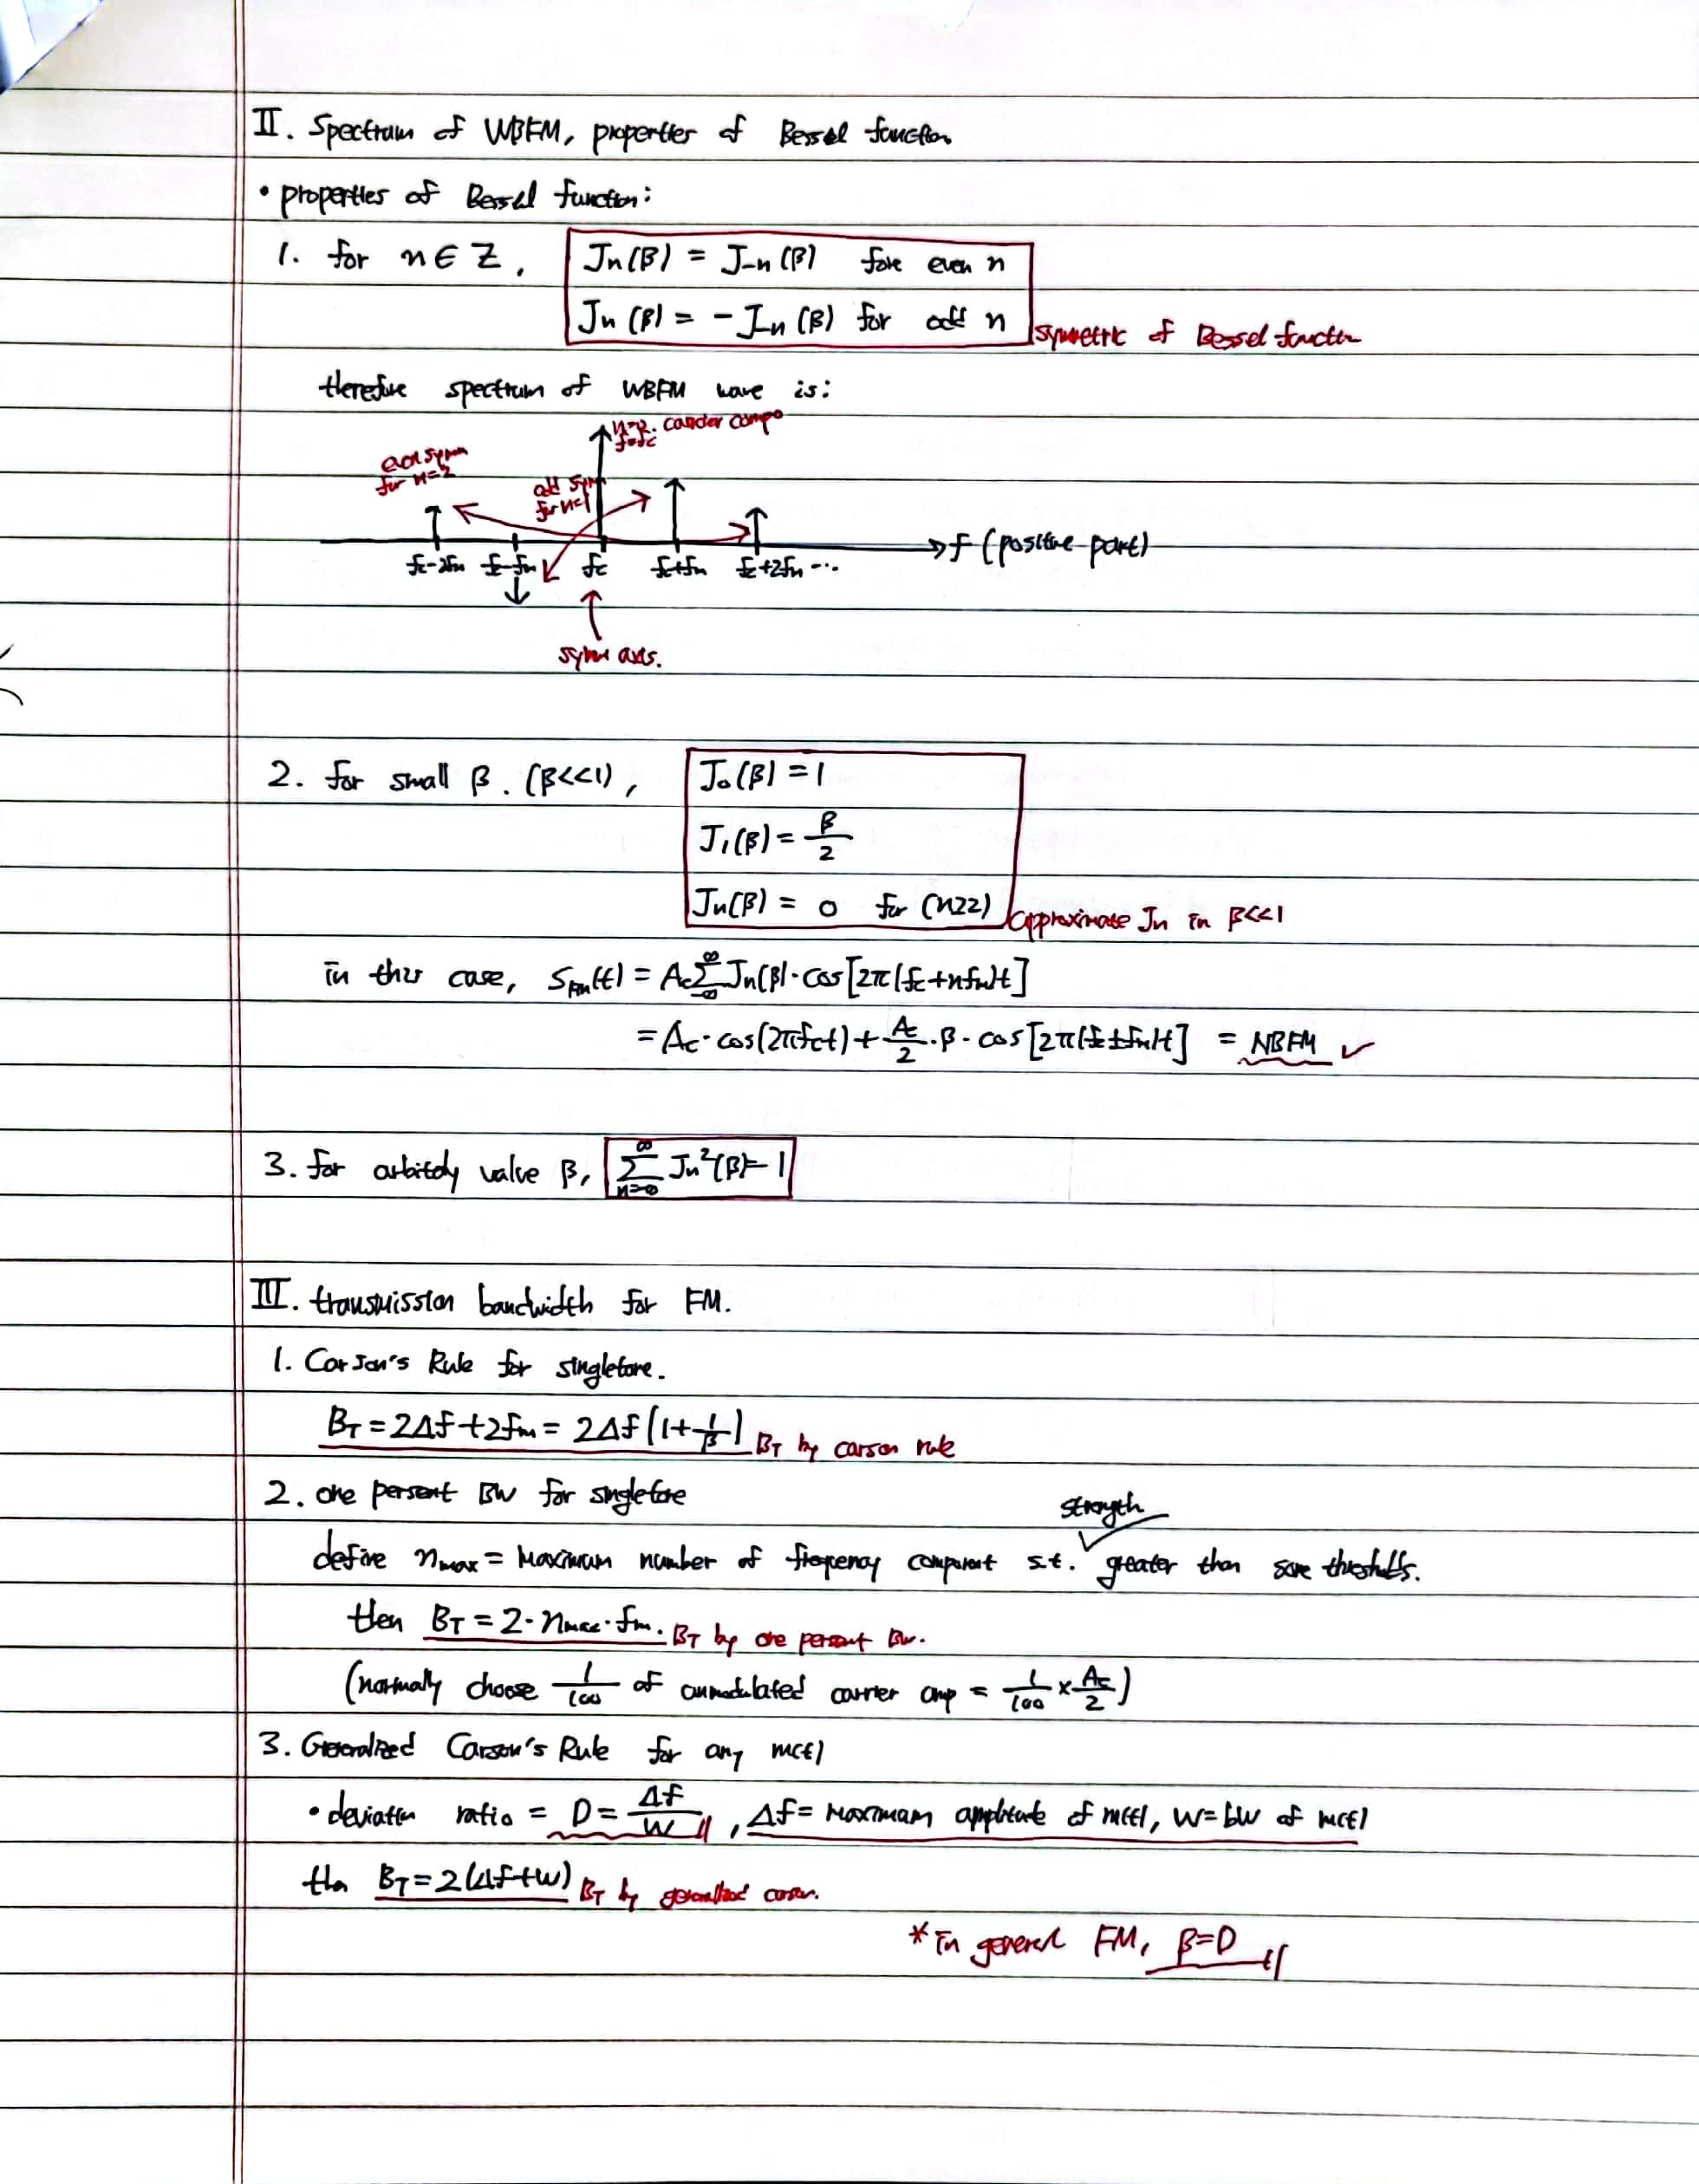 II. Spectrum of WBFM, properties of Bessel function
• properties of Bessel function:
1. for n ∈ Z, Jn(β) = J-n(β) for even n
Jn(β) = -J-n(β) for odd n
symmetric of Bessel function
therefore spectrum of WBFM wave is:
f=fc carrier compo
even symm for n=2
odd sym for n=1
f (positive part)
fc-2fm fc-fm fc fc+fm fc+2fm ...
symm axis.
2. for small β. (β<<1), J₀(β) = 1
J₁(β) = β/2
Jn(β) = 0 for (n≥2)
approximate Jn in β<<1
in this case, SFM(t) = Ac Σ_{-∞}^{∞} Jn(β)·cos[2π(fc+nfm)t]
= Ac·cos(2πfct) + Ac/2·β·cos[2π(fc±fm)t] = NBFM ✓
3. for value β, Σ_{n=-∞}^{∞} Jn²(β) = 1
III. transmission bandwidth for FM.
1. Carson's Rule for singletone.
BT = 2Δf + 2fm = 2Δf(1 + 1/β) BT by carson rule
2. one persent BW for singletone
strength
define nmax = Maximum number of frequency component s.t. greater than some thresholds.
then BT = 2·nmax·fm. BT by one persent BW.
(normally choose 1/100 of unmodulated carrier amp = 1/100 × Ac/2)
3. Generalized Carson's Rule for any m(t)
• deviation ratio = D = Δf/W, Δf = maximum amplitude of m(t), W = bw of m(t)
then BT = 2(Δf+W) BT by generalized carson.
* in general FM, β=D